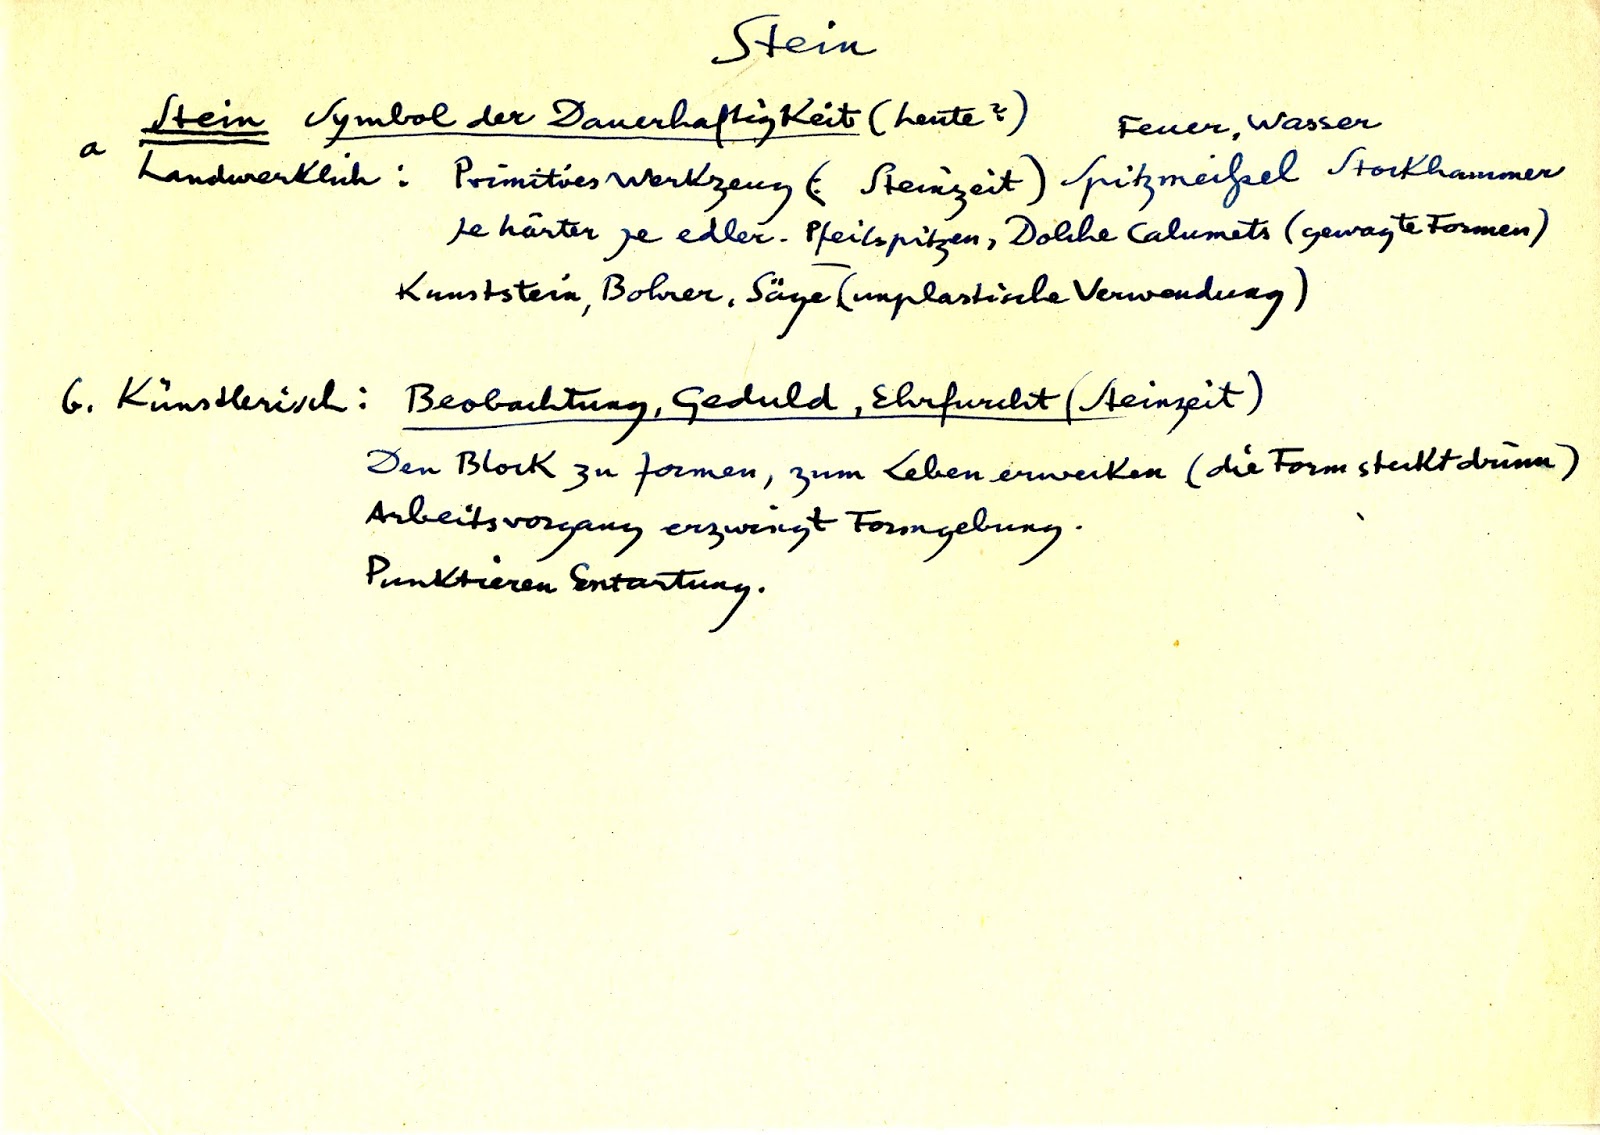 Stein
Stein Symbol der Dauerhaftigkeit (heute?) Feuer, Wasser
a Handwerklich: Primitives Werkzeug (: Steinzeit) Spitzmeißel Stockhammer
Je härter je edler. Pfeilspitzen, Dolche Calumets (gewagte Formen)
Kunststein, Bohrer, Säge (unplastische Verwendung)
b. Künstlerisch: Beobachtung, Geduld, Ehrfurcht (Steinzeit)
Den Block zu formen, zum Leben erwecken (die Form steckt drinn)
Arbeitsvorgang erzwingt Formgebung.
Punktieren Entartung.